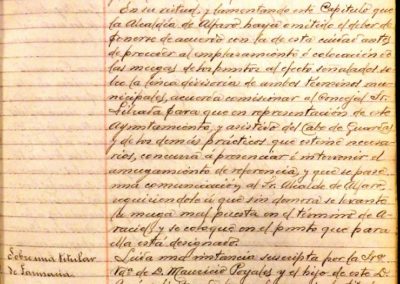 En su virtud, y lamentando este Capítulo que
la Alcaldía de Alfaro haya omitido el deber de
ponerse de acuerdo con la de esta ciudad antes
de proceder al emplazamiento ó colocación de
las mugas de los puntos al efecto señalados so-
bre la línea divisoria de ambos términos mu-
nicipales, acuerda comisionar al Concejal Sr.
para que en representación de este
Ayuntamiento, y asistido del Cabo de Guardas
y de los demás prácticos, que estime necesa-
rios, concurra á presenciar é intervenir el
amugamiento de referencia, y que se pase
una comunicación al Sr. Alcalde de Alfaro,
requiriéndole á que sin demora se levante
la muga mal puesta en el término de
y se coloque en el punto que para
ella está designado.
Sobre una titular
de Farmacia
Leída una instancia suscripta por la Sra.
Vda. de D. Mauricio y el hijo de este D.